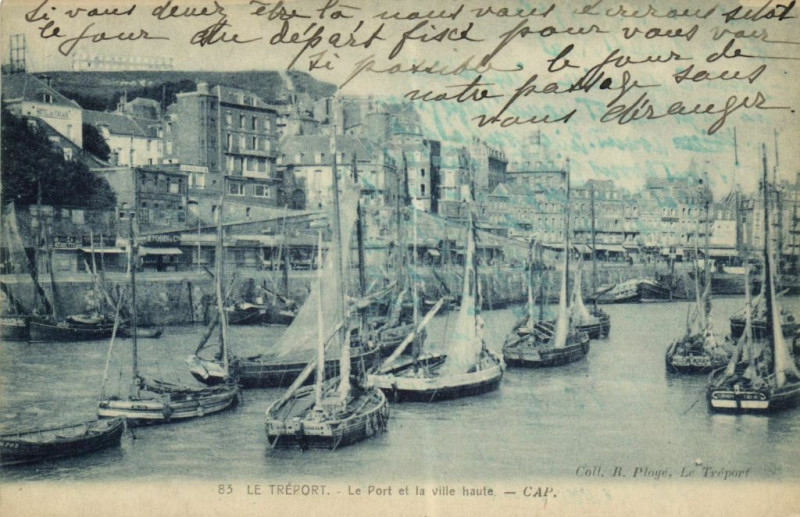 Si vous devez être là nous vous écrirons sitôt
le jour du départ fixé pour vous voir
si possible le jour de
notre passage sans
vous déranger
Coll. R. Ployé, Le Tréport
83 LE TRÉPORT. - Le Port et la ville haute. — CAP.